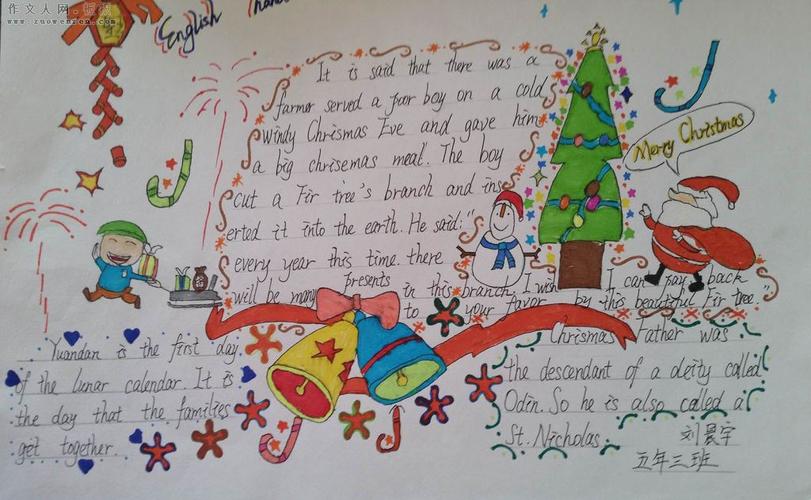 作文人网·板报
www.zuowenren.com
English
It is said that there was a
farmer served a poor boy on a cold
windy Chrismas Eve and gave him
a big chrisemas meal. The boy
cut a Fir tree's branch and ins
erted it into the earth. He said:"
every year this time. there
will be many presents in this branch. I wish I can pay back
to your favor by this beautiful Fir tree."
Merry Christmas
Yuandan is the first day
of the lunar calendar. It is
the day that the families
get together.
Chrismas Father was
the descendant of a deity called
Odin. So he is also called a
St. Nicholas.
刘晨宇
五年三班